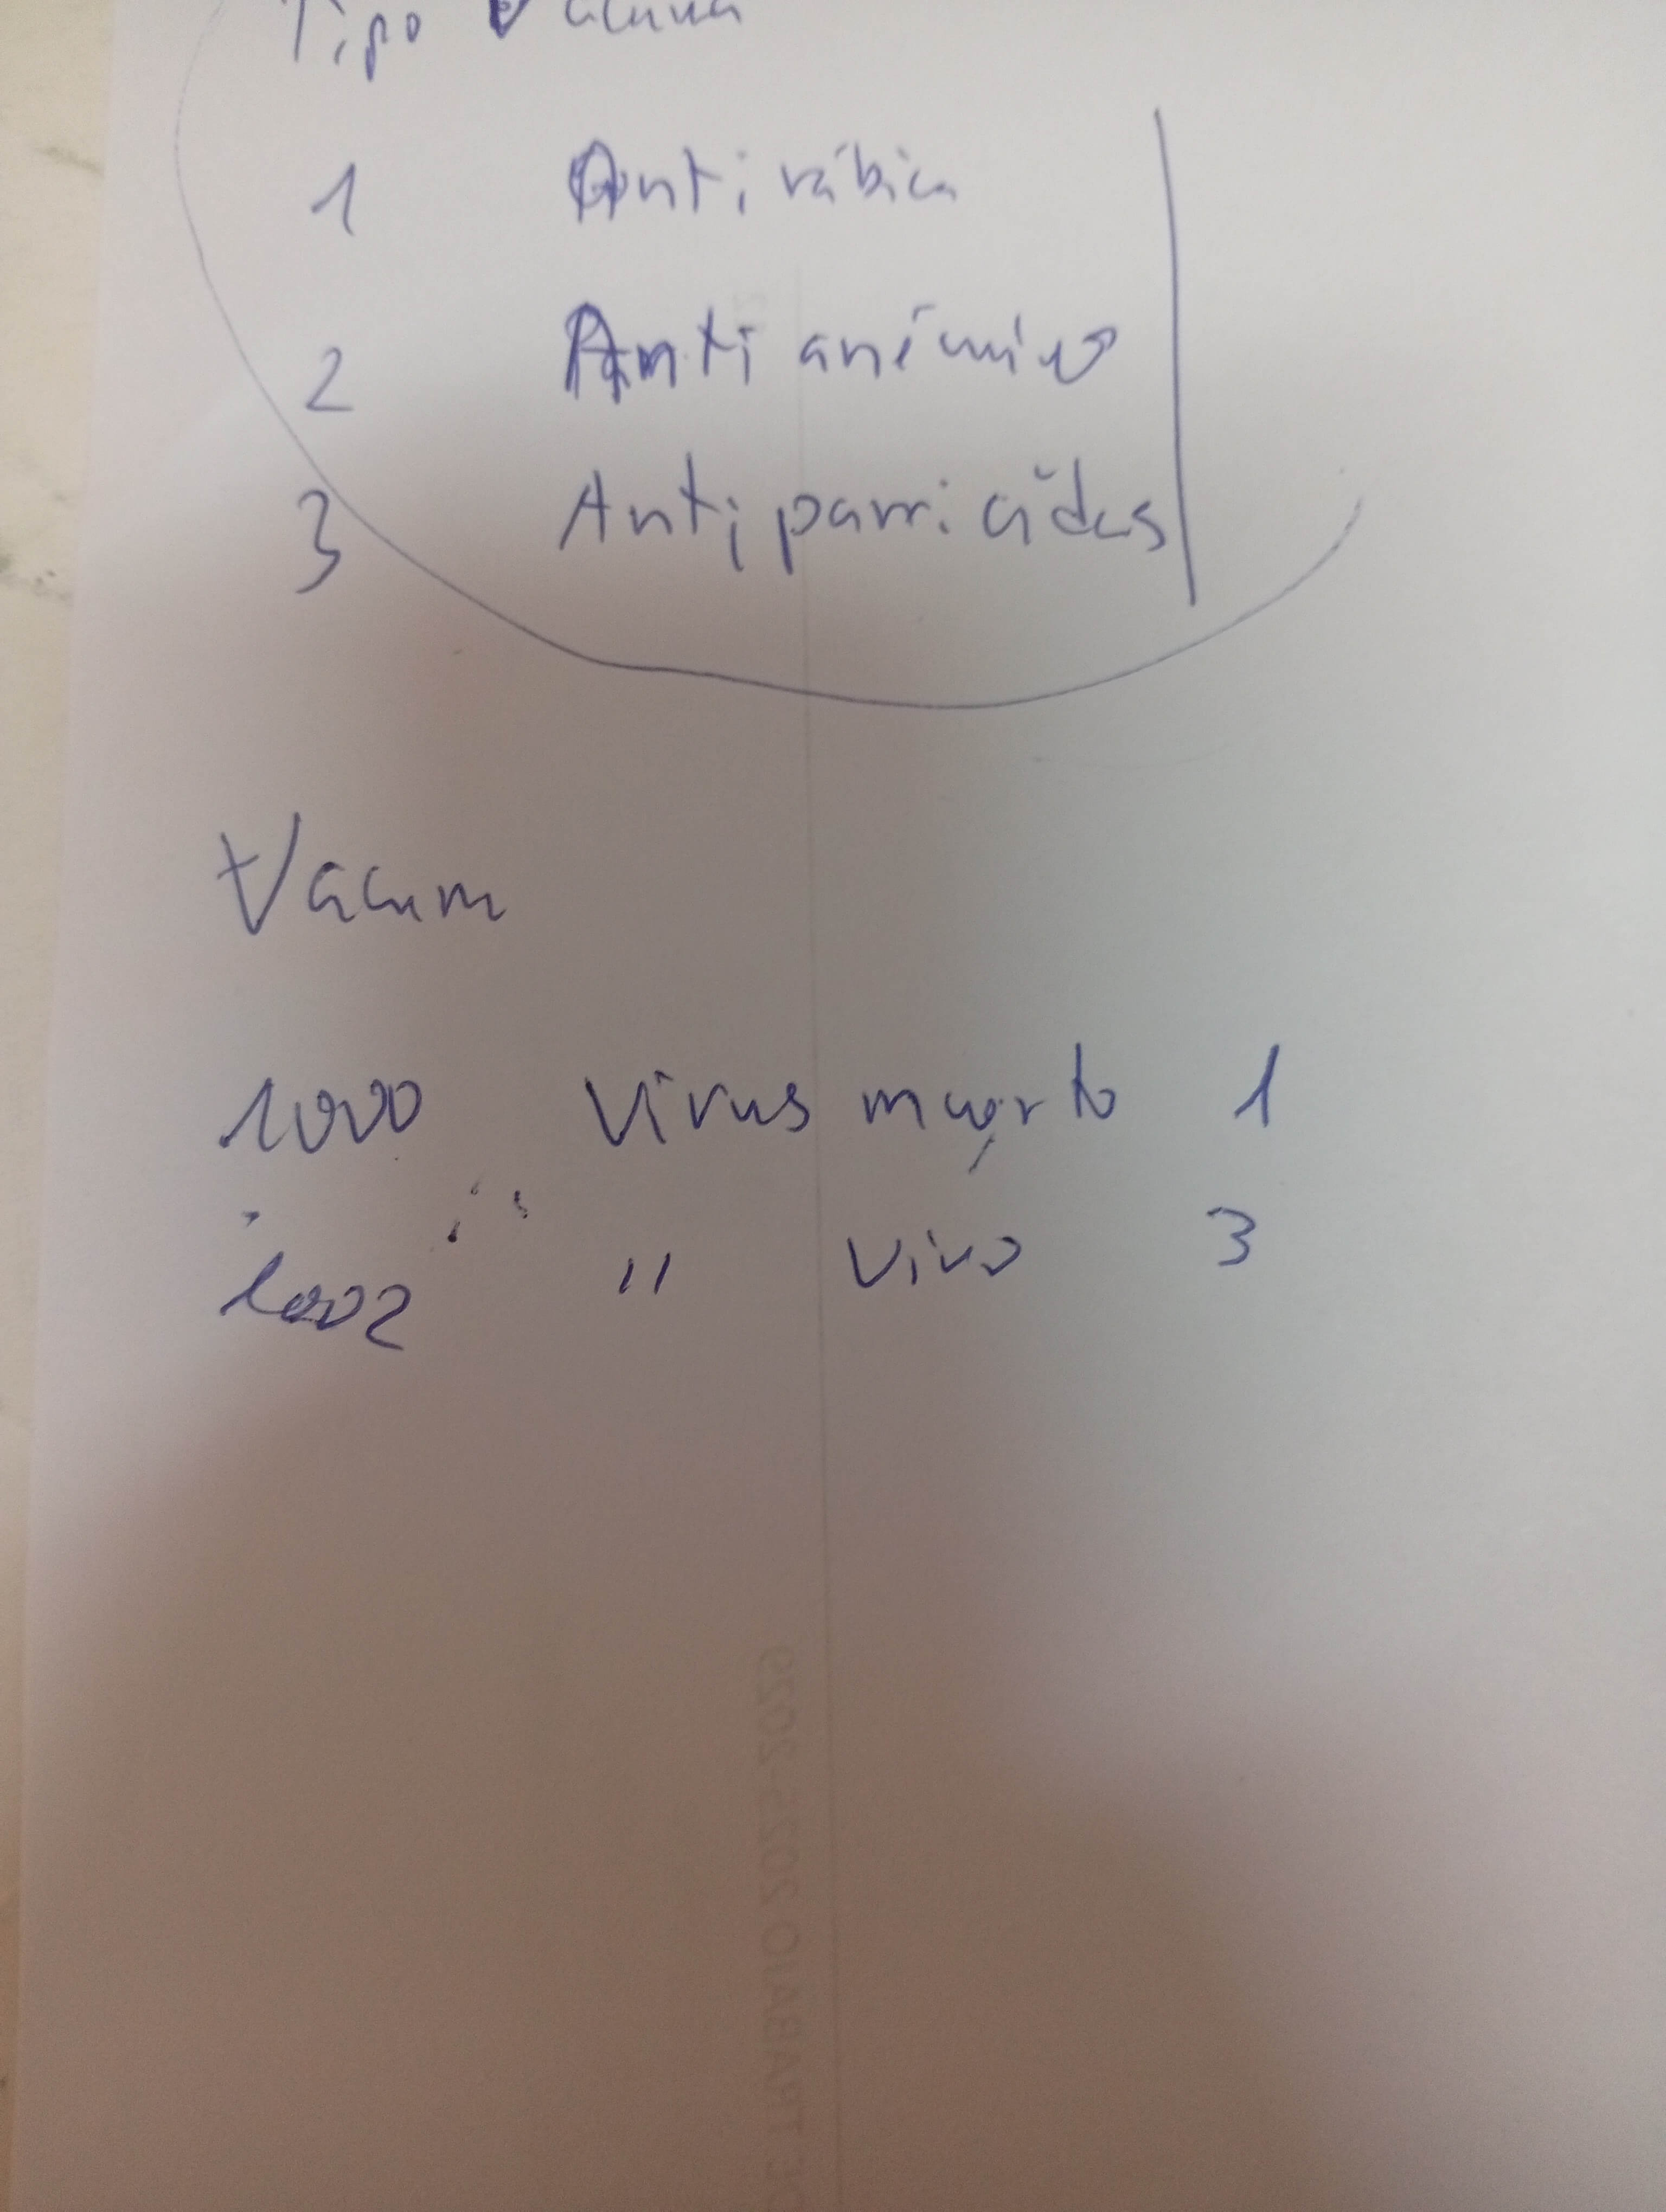 Tipo Vacuna
1 Antirábica
2 Anti anémico
3 Antiparricidas
Vacuna
1000 Virus muerto 1
1002 " vivo 3